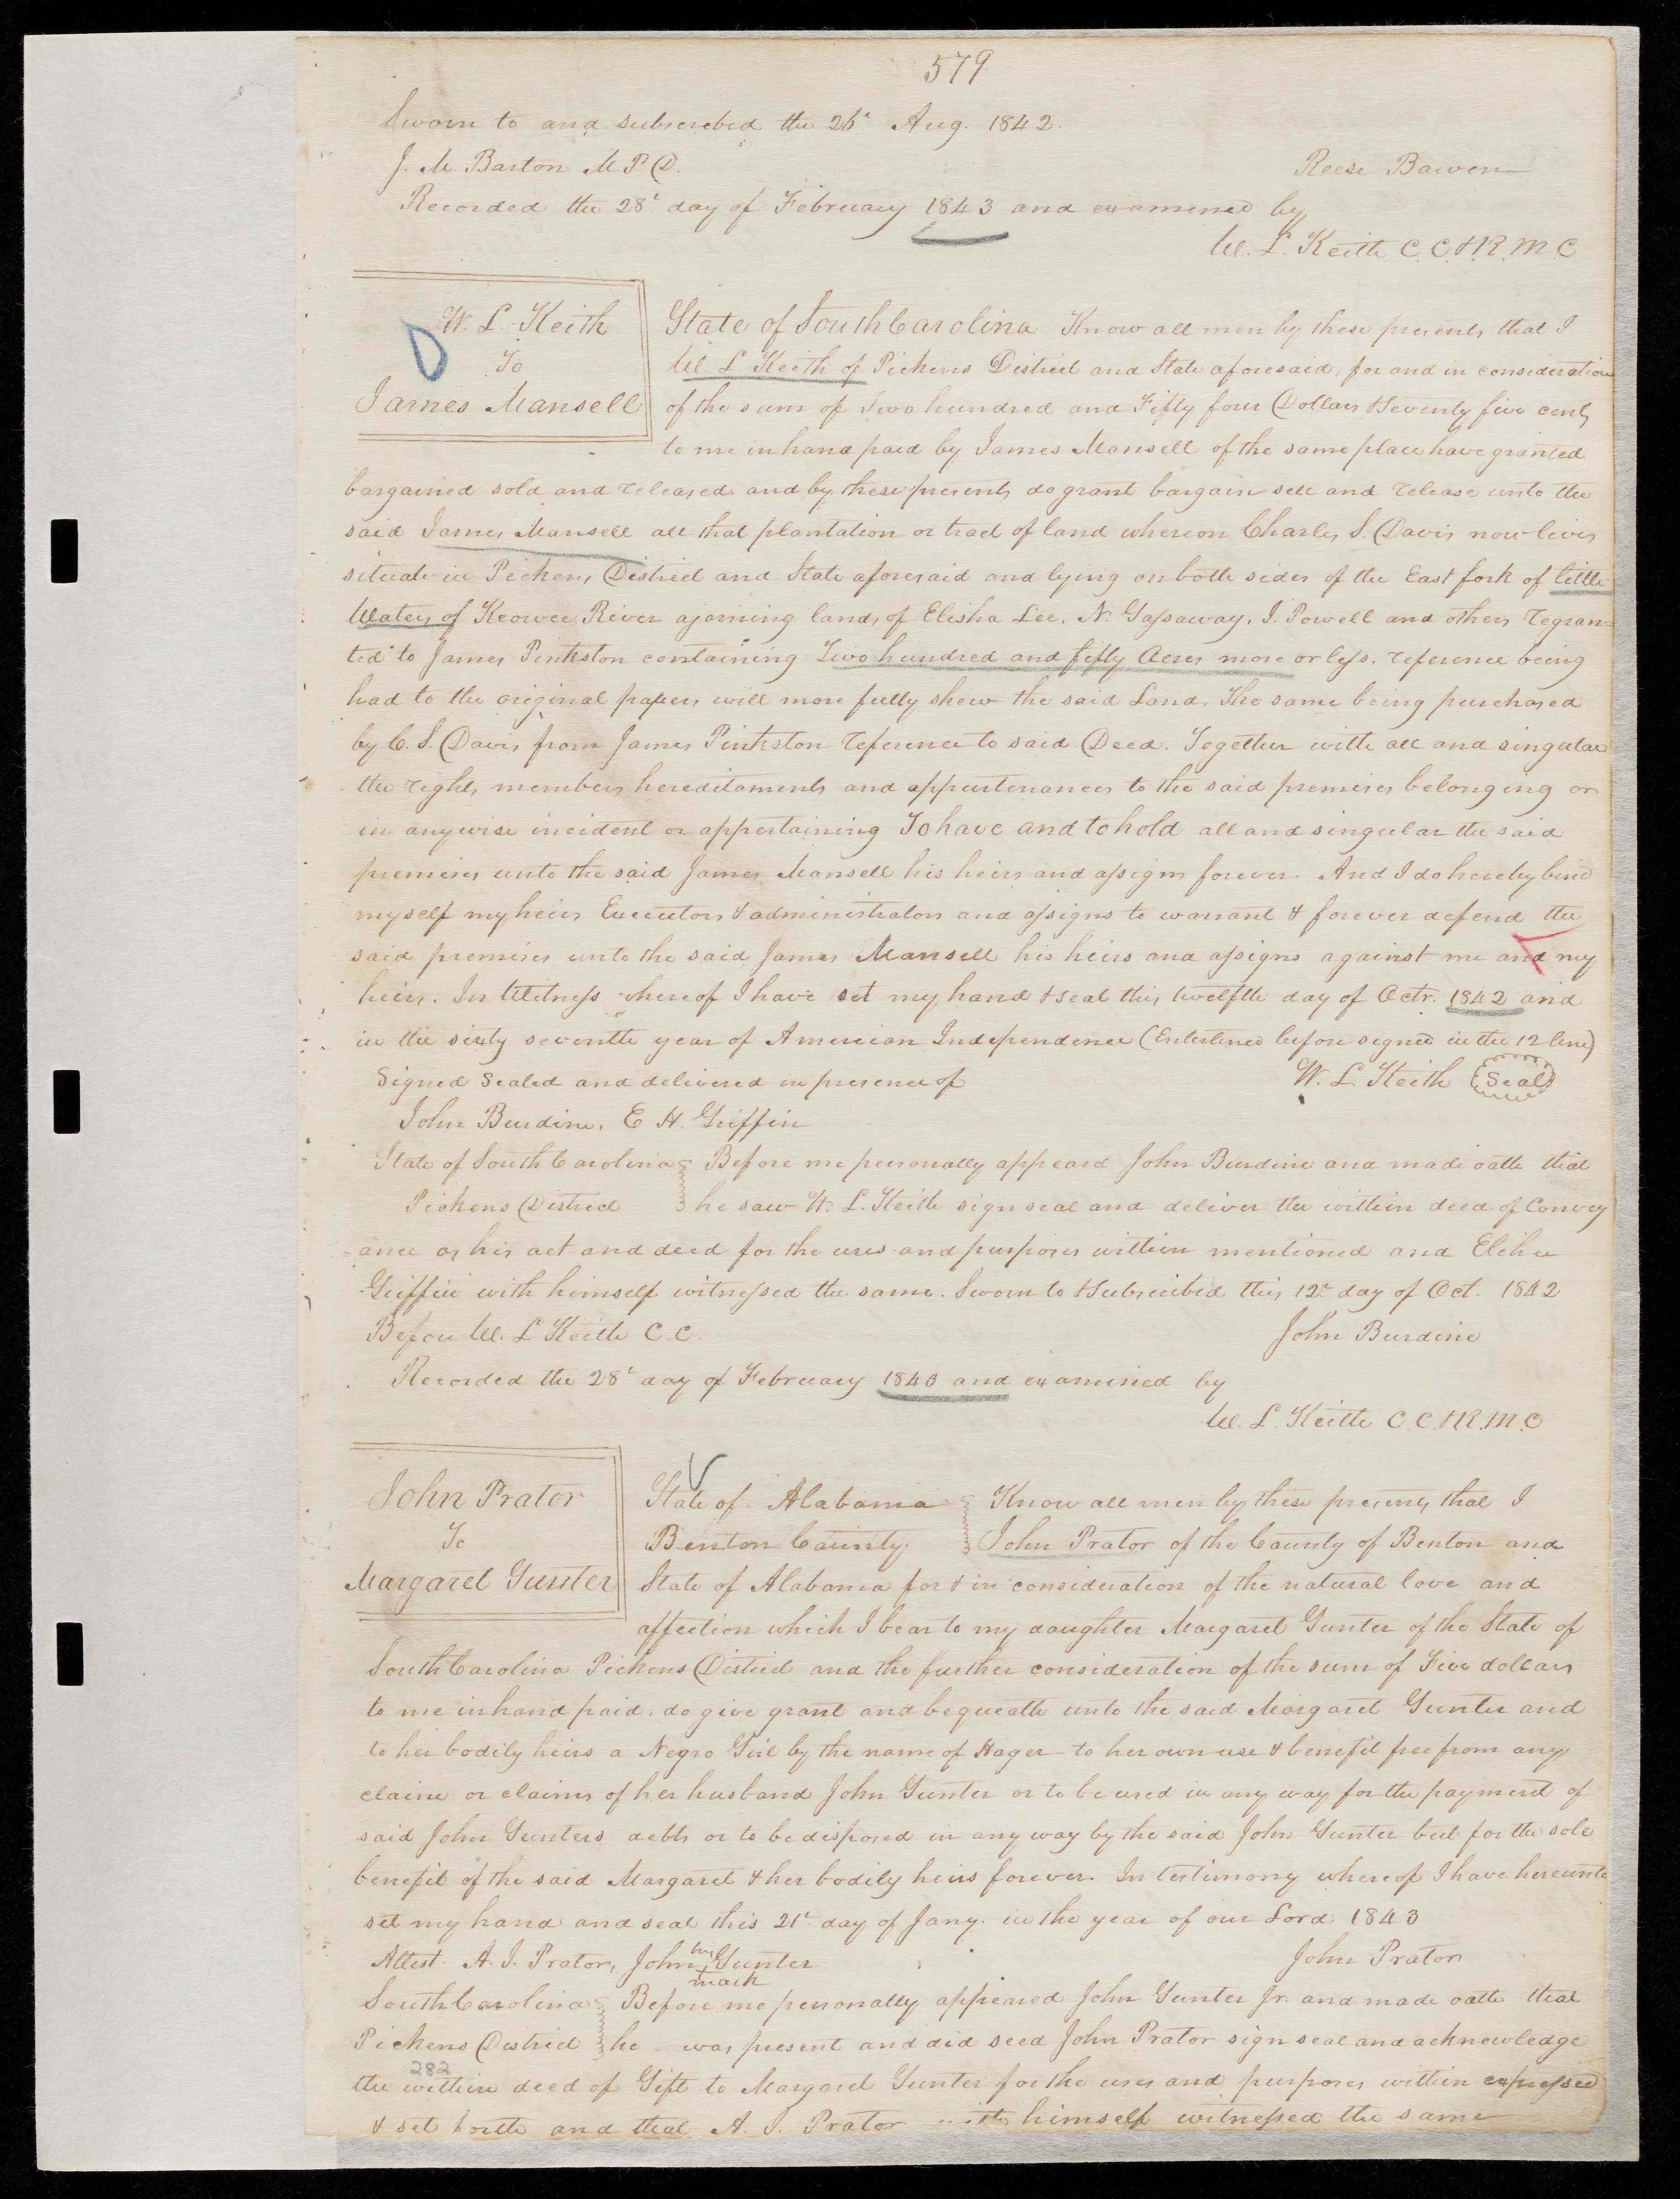 579
Sworn to and subscribed the 26t Aug. 1842.
J. M. Barton M. P. D.
Reese Bowen
Recorded the 28t day of February 1843 and examined by
W. L. Keith C. C. & R. M. C
W. L. Keith
To
James Mansell
State of South Carolina Know all men by these presents that I
W L Keith of Pickens District and State aforesaid, for and in consideration
of the sum of Two hundred and Fifty four Dollars & Seventy five cents
to me in hand paid by James Mansell of the same place have granted
bargained sold and released and by these presents do grant bargain sell and release unto the
said James Mansell all that plantation or tract of land whereon Charles S. Davis now lives
situate in Pickens District and State aforesaid and lying on both sides of the East fork of little
Waters of Keowee River ajoining lands of Elisha Lee, N. Gassaway, J. Powell and others regran=
ted to James Pinkston containing Two hundred and fifty Acres more or less, reference being
had to the original papers will more fully shew the said Land, The same being purchased
by C. S. Davis from James Pinkston reference to said Deed. Together with all and singular
the rights members hereditaments and appurtenances to the said premises belonging or
in anywise incident or appertaining To have and to hold all and singular the said
premises unto the said James Mansell his heirs and assigns forever. And I do hereby bind
myself my heirs Executors & administrators and assigns to warrant & forever defend the
said premises unto the said James Mansell his heirs and assigns against me and my
heirs. In Witness whereof I have set my hand & seal this twelfth day of Octr. 1842 and
in the sixty seventh year of American Independence (Enterlined before signed in the 12 line)
Signed Sealed and delivered in presence of
W. L. Keith (Seal)
John Burdine, E. H. Griffin
State of South Carolina } Before me personally appeard John Burdine and made oath that
Pickens District } he saw W. L. Keith sign seal and deliver the within deed of Convey
=ance as his act and deed for the uses and purposes within mentioned and Elihu
Griffin with himself witnessed the same. Sworn to & Subscribed this 12t day of Oct. 1842
Before W. L Keith C. C.
John Burdine
Recorded the 28t day of February 1843 and examined by
W. L. Keith C. C. & R. M. C
John Prator
To
Margaret Gunter
State of Alabama } Know all men by these presents that I
Benton County. } John Prator of the County of Benton and
State of Alabama for & in consideration of the natural love and
affection which I bear to my daughter Margaret Gunter of the State of
South Carolina Pickens District and the further consideration of the sum of Five dollars
to me in hand paid. do give grant and bequeath unto the said Margaret Gunter and
to her bodily heirs a Negro Girl by the name of Hager to her own use & benefit free from any
claim or claims of her husband John Gunter or to be used in any way for the payment of
said John Gunters debts or to be disposed in any way by the said John Gunter but for the sole
benefit of the said Margaret & her bodily heirs forever. In testimony whereof I have hereunto
set my hand and seal this 21t day of Jany. in the year of our Lord 1843
Attest. A. J. Prator, John his Gunter
mark
John Prator
South Carolina } Before me personally appeared John Gunter Jr. and made oath that
Pickens District } he was present and did seed John Prator sign seal and acknowledge
282
the within deed of Gift to Margaret Gunter for the uses and purposes within expressed
& set forth and that A. J. Prator with himself witnessed the same